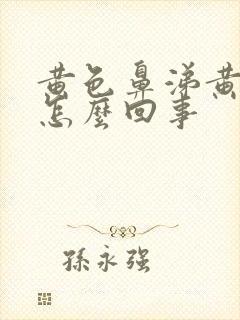 黄色鼻涕黄
怎麼回事
孫永强